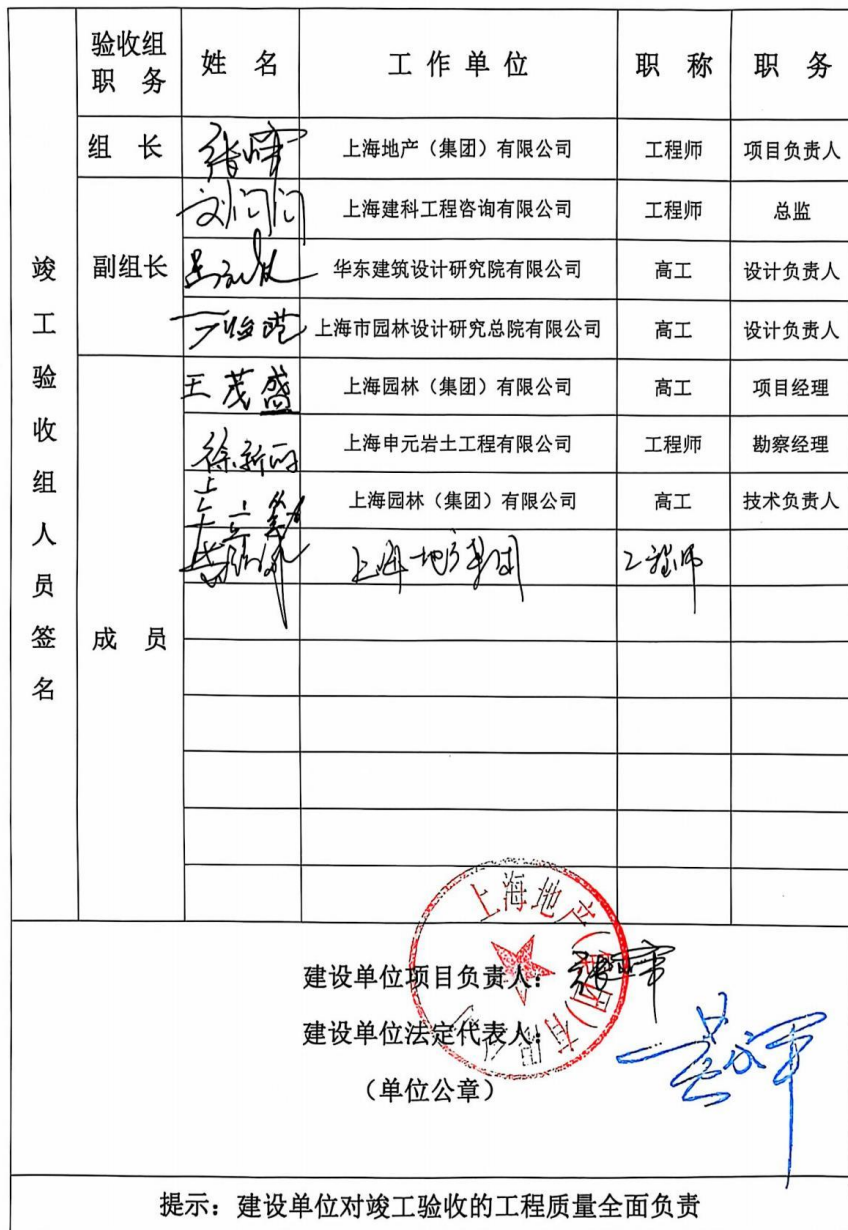 验收组职 务 姓 名 工 作 单 位 职 称 职 务
竣工验收组人员签名
组 长 上海地产（集团）有限公司 工程师 项目负责人
副组长
上海建科工程咨询有限公司 工程师 总监
华东建筑设计研究院有限公司 高工 设计负责人
上海市园林设计研究总院有限公司 高工 设计负责人
成 员
王茂盛 上海园林（集团）有限公司 高工 项目经理
上海申元岩土工程有限公司 工程师 勘察经理
上海园林（集团）有限公司 高工 技术负责人
上海地产集团 工程师
上海地产（集团）有限公司
建设单位项目负责人：
建设单位法定代表人：
（单位公章）
提示：建设单位对竣工验收的工程质量全面负责